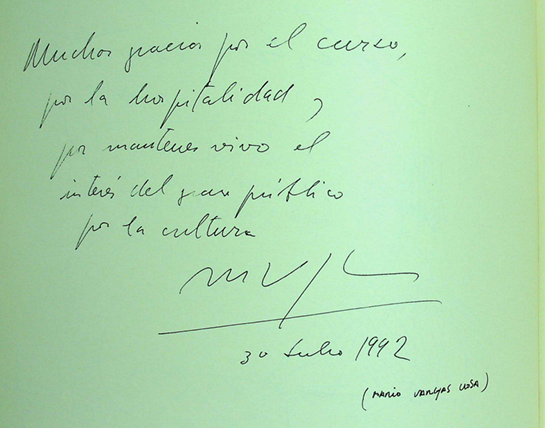 Muchas gracias por el curso,
por la hospitalidad,
por mantener vivo el
interés del gran público
por la cultura
30 Julio 1992
(MARIO VARGAS LLOSA)